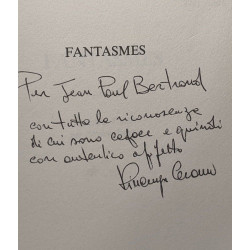 FANTASMES
Per Jean Paul Bertrand
con tutta la riconoscenza
di cui sono capace e quindi
con autentico affetto
Vincenzo Cerami